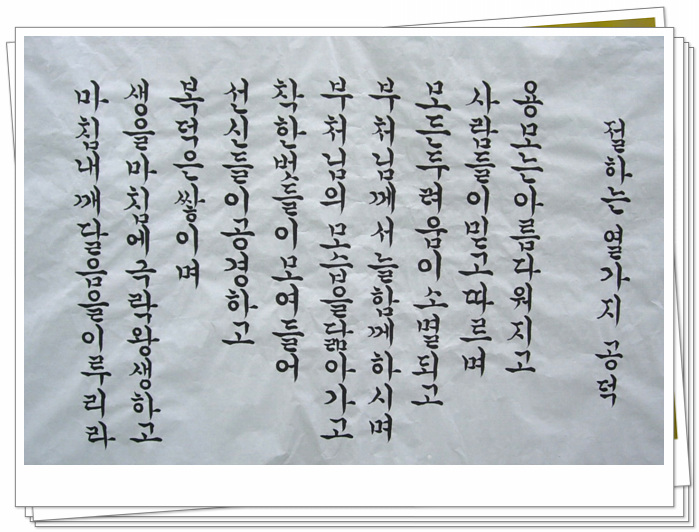 절하는 열가지 공덕
용모는 아름다워지고
사람들이 믿고 따르며
모든 두려움이 소멸되고
부처님께서 늘 함께하시며
부처님의 모습을 닮아가고
착한 벗들이 모여들어
선신들이 공경하고
복덕은 쌓이며
생을 마침에 극락왕생하고
마침내 깨달음을 이루리라